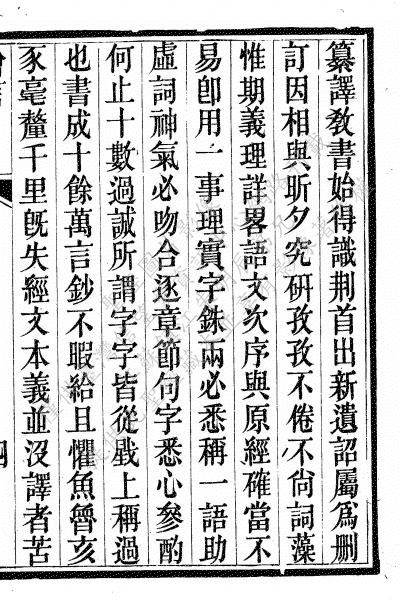 纂譯教書始得識荆首出新遺詔屬爲删
訂因相與昕夕究研孜孜不倦不尙詞藻
惟期義理詳畧語文次序與原經確當不
易卽用一事理實字銖兩必悉稱一語助
虛詞神氣必吻合逐章節句字悉心參酌
何止十數過誠所謂字字皆從戥上稱過
也書成十餘萬言鈔不暇給且懼魚魯亥
豕毫釐千里旣失經文本義並沒譯者苦